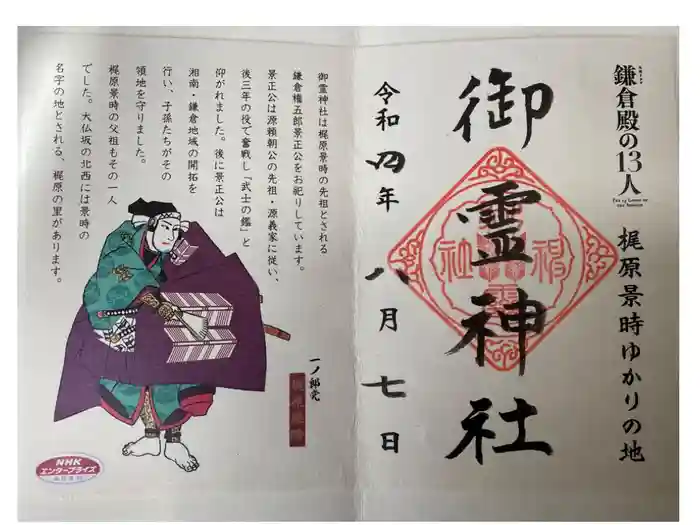 鎌倉殿の13人
THE 13 LORDS OF THE SHOGUN
梶原景時ゆかりの地
御霊神社
令和四年八月七日
御霊神社は梶原景時の先祖とされる
鎌倉権五郎景正公をお祀りしています。
景正公は源頼朝公の先祖・源義家に従い、
後三年の役で奮戦し「武士の鑑」と
仰がれました。後に景正公は
湘南・鎌倉地域の開拓を
行い、子孫たちがその
領地を守りました。
梶原景時の父祖もその一人
でした。大仏坂の北西には景時の
名字の地とされる、梶原の里があります。
NHK
エンタープライズ